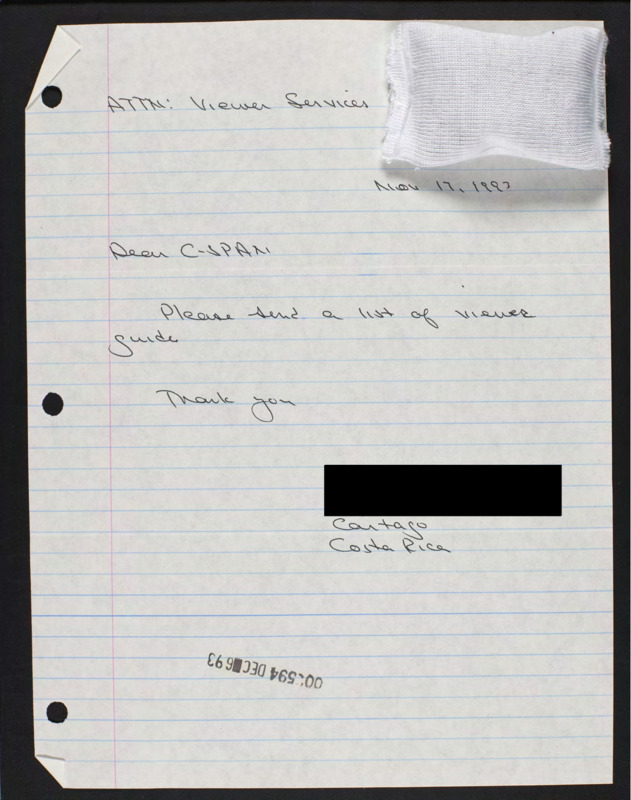 ATTN: Viewer Services
Nov 17, 1993
Dear C-SPAN
Please send a list of viewer
guide
Thank you
Cartago
Costa Rica
594 DEC 6 93